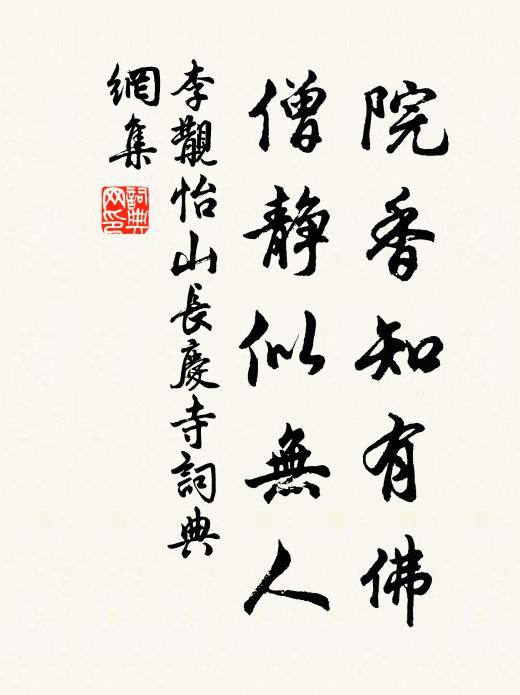 院香知有佛
僧靜似無人
李觀怡山長慶寺詞典
網集
詞典網印